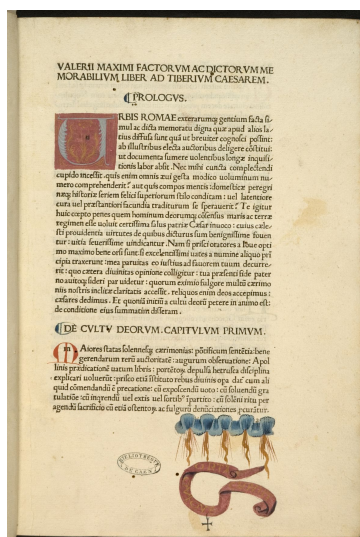 VALERII MAXIMI FACTORVM AC DICTORVM ME
MORABILIVM LIBER AD TIBERIVM CAESAREM.
PROLOGVS.
VRBIS ROMAE exterarumq; gentium facta si
mul ac dicta memoratu digna quæ apud alios la
tius diffusa sunt quã ut breuiter cognosci possint:
ab illustribus electa auctoribus deligere cõstitui:
ut documenta sumere uolentibus longæ inquisi
tionis labor absit. Nec mihi cuncta complectendi
cupido incessit. quis enim omnis æui gesta modico uoluminum nu
mero comprehenderit? aut quis compos mentis: domesticæ peregri
næq; historiæ seriem felici superiorum stilo conditam: uel latentiore
cura uel præstantiori facundia traditurum se sperauerit? Te igitur
huic cœpto penes quem hominum deorumq; cõsensus maris ac terræ
regimen esse uoluit certissima salus patriæ Cæsar inuoco: cuius cæle
sti prouidentia uirtutes de quibus dicturus sum benignissime fouen
tur: uitia seuerissime uindicantur. Nam si prisci oratores a Ioue opti
mo maximo bene orsi sunt: si excellentissimi uates a numine aliquo prĩ
cipia traxerunt: mea paruitas eo iustius ad fauorem tuum decurre-
rit: quo cætera diuinitas opinione colligitur: tua præsenti fide pater
no auitoq; sideri par uidetur: quorum eximio fulgore multũ cærimo
niis nostris inclitæ claritatis accessit. reliquos enim deos accepimus:
cæsares dedimus. Et quoniã initiũ a cultu deorũ petere in animo est:
de conditione eius summatim disseram.
DE CVLTV DEORVM. CAPITVLVM PRIMVM.
MAiores statas solennesq; cærimonias: põtificum sententia: bene
gerendarum rerũ auctoritatẽ: augurum obseruatione: Apol
linis prædicatione uatum libris: portẽtoq; depulsa hetrusca disciplina
explicari uoluerũt: prisco etiã instituto rebus diuinis opa dat̃ cum ali
quid cõmendandũ ẽ precatione: cũ exposcendũ uoto: cũ soluendũ gra
tulatiõe: cũ inqrendũ uel extis uel sortibꝰ ĩpartito: cũ solẽni ritu per
agendũ sacrificio cũ etiã ostentoꝝ ac fulgurũ denũciationes pcurãtur.
BIBLIOTHEQUE
DE CAEN